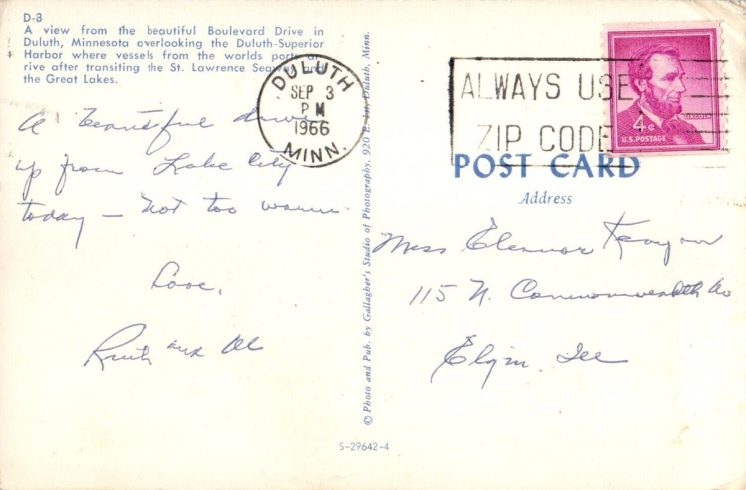 D-8
A view from the beautiful Boulevard Drive in
Duluth, Minnesota overlooking the Duluth-Superior
Harbor where vessels from the worlds ports ar
rive after transiting the St. Lawrence Seaway and
the Great Lakes.
A beautiful drive
up from Lake City
today – Not too warm.
Love,
Ruth and Al
DULUTH
SEP 3
PM
1966
MINN.
ALWAYS USE
ZIP CODE
LINCOLN
4¢
U.S. POSTAGE
POST CARD
Address
Miss Eleanor
115 N. Commonwealth Av
Elgin, Ill
© Photo and Pub. by Gallagher's Studio of Photography, 920 E. 1st, Duluth, Minn.
S-29642-4